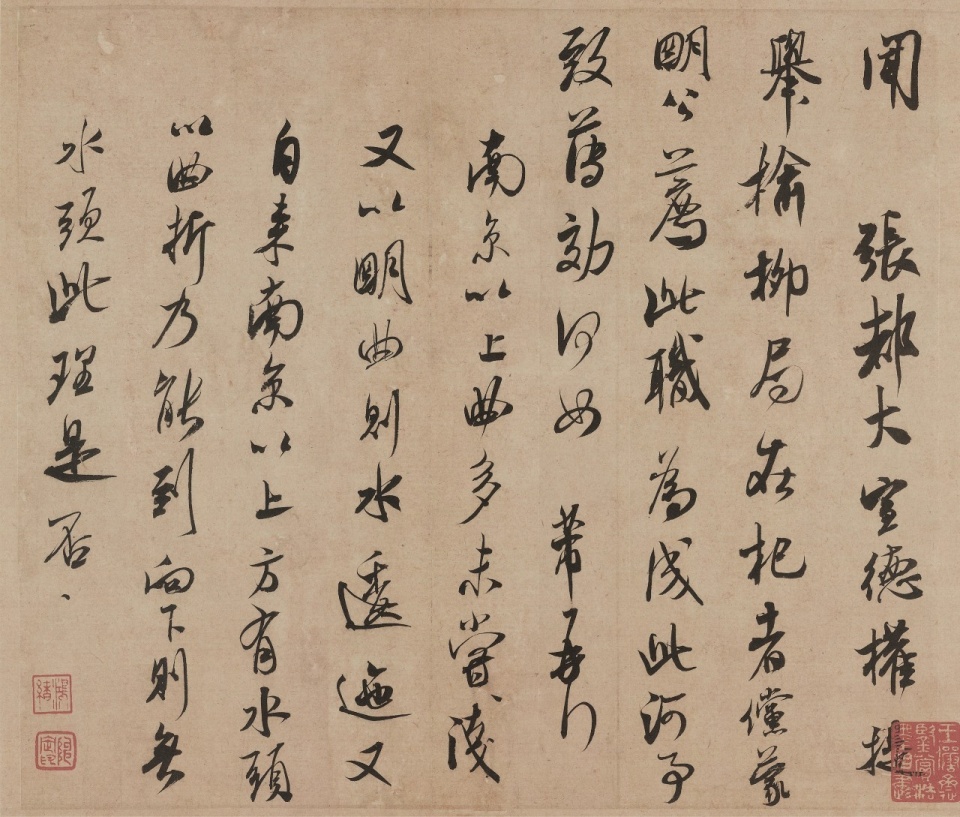 聞 張都大宣德權提
舉榆柳局在杞者儻蒙
明公薦此職為成此河事
致薄效何如 芾再行
南京以上曲多未嘗淺
又以明曲則水逶迤又
自來南京以上方有水頭
以曲折乃能到向下則無
水頭此理是否